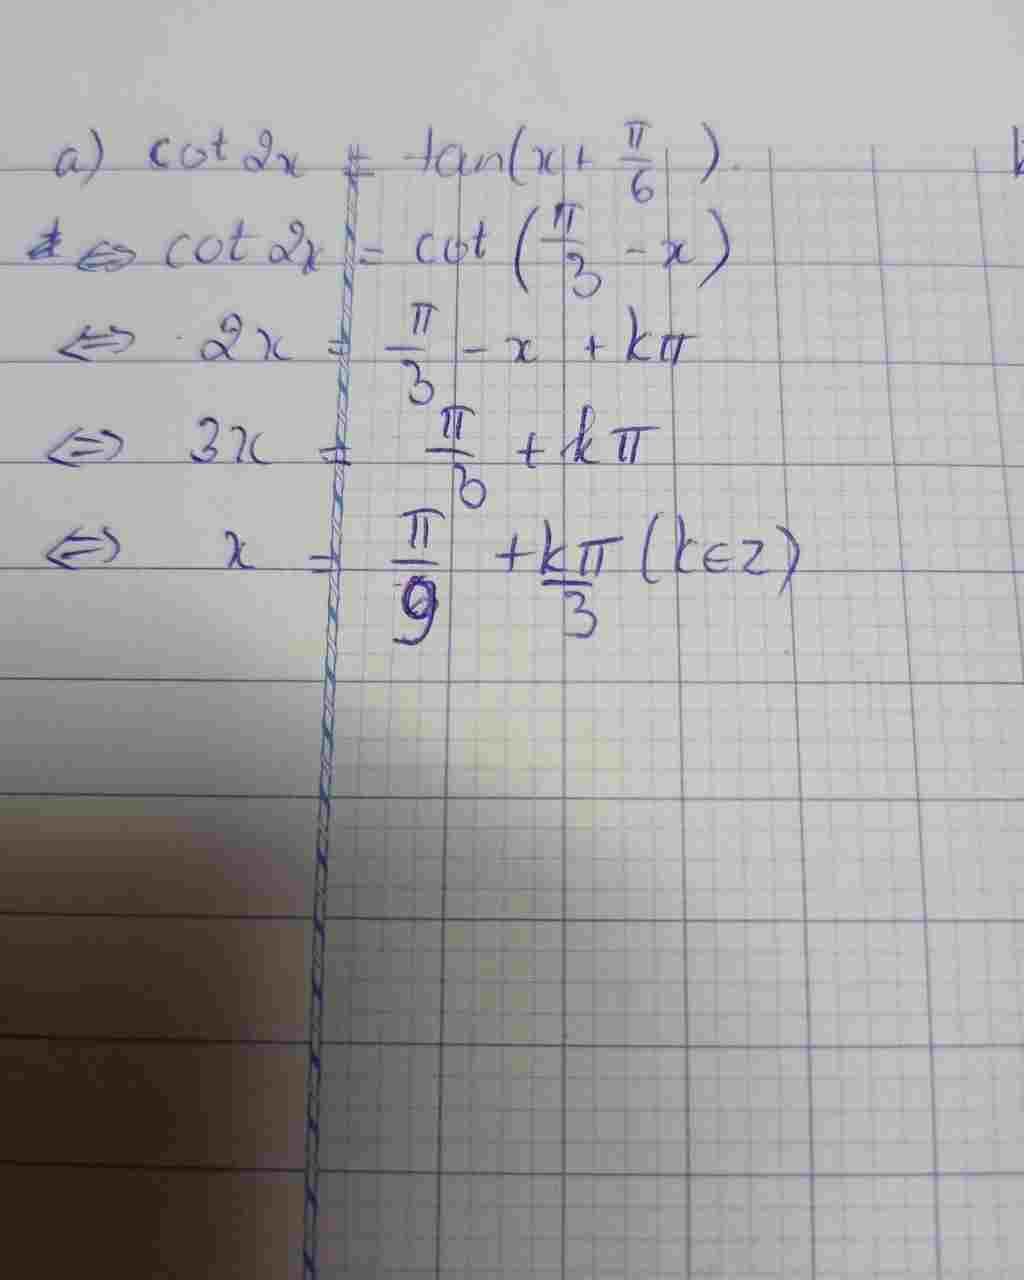 a) cot 2x = tan(x + π/6).
⇔ cot 2x = cot (π/3 - x)
⇔ 2x = π/3 - x + kπ
⇔ 3x = π/3 + kπ
⇔ x = π/9 + kπ/3 (k∈Z)